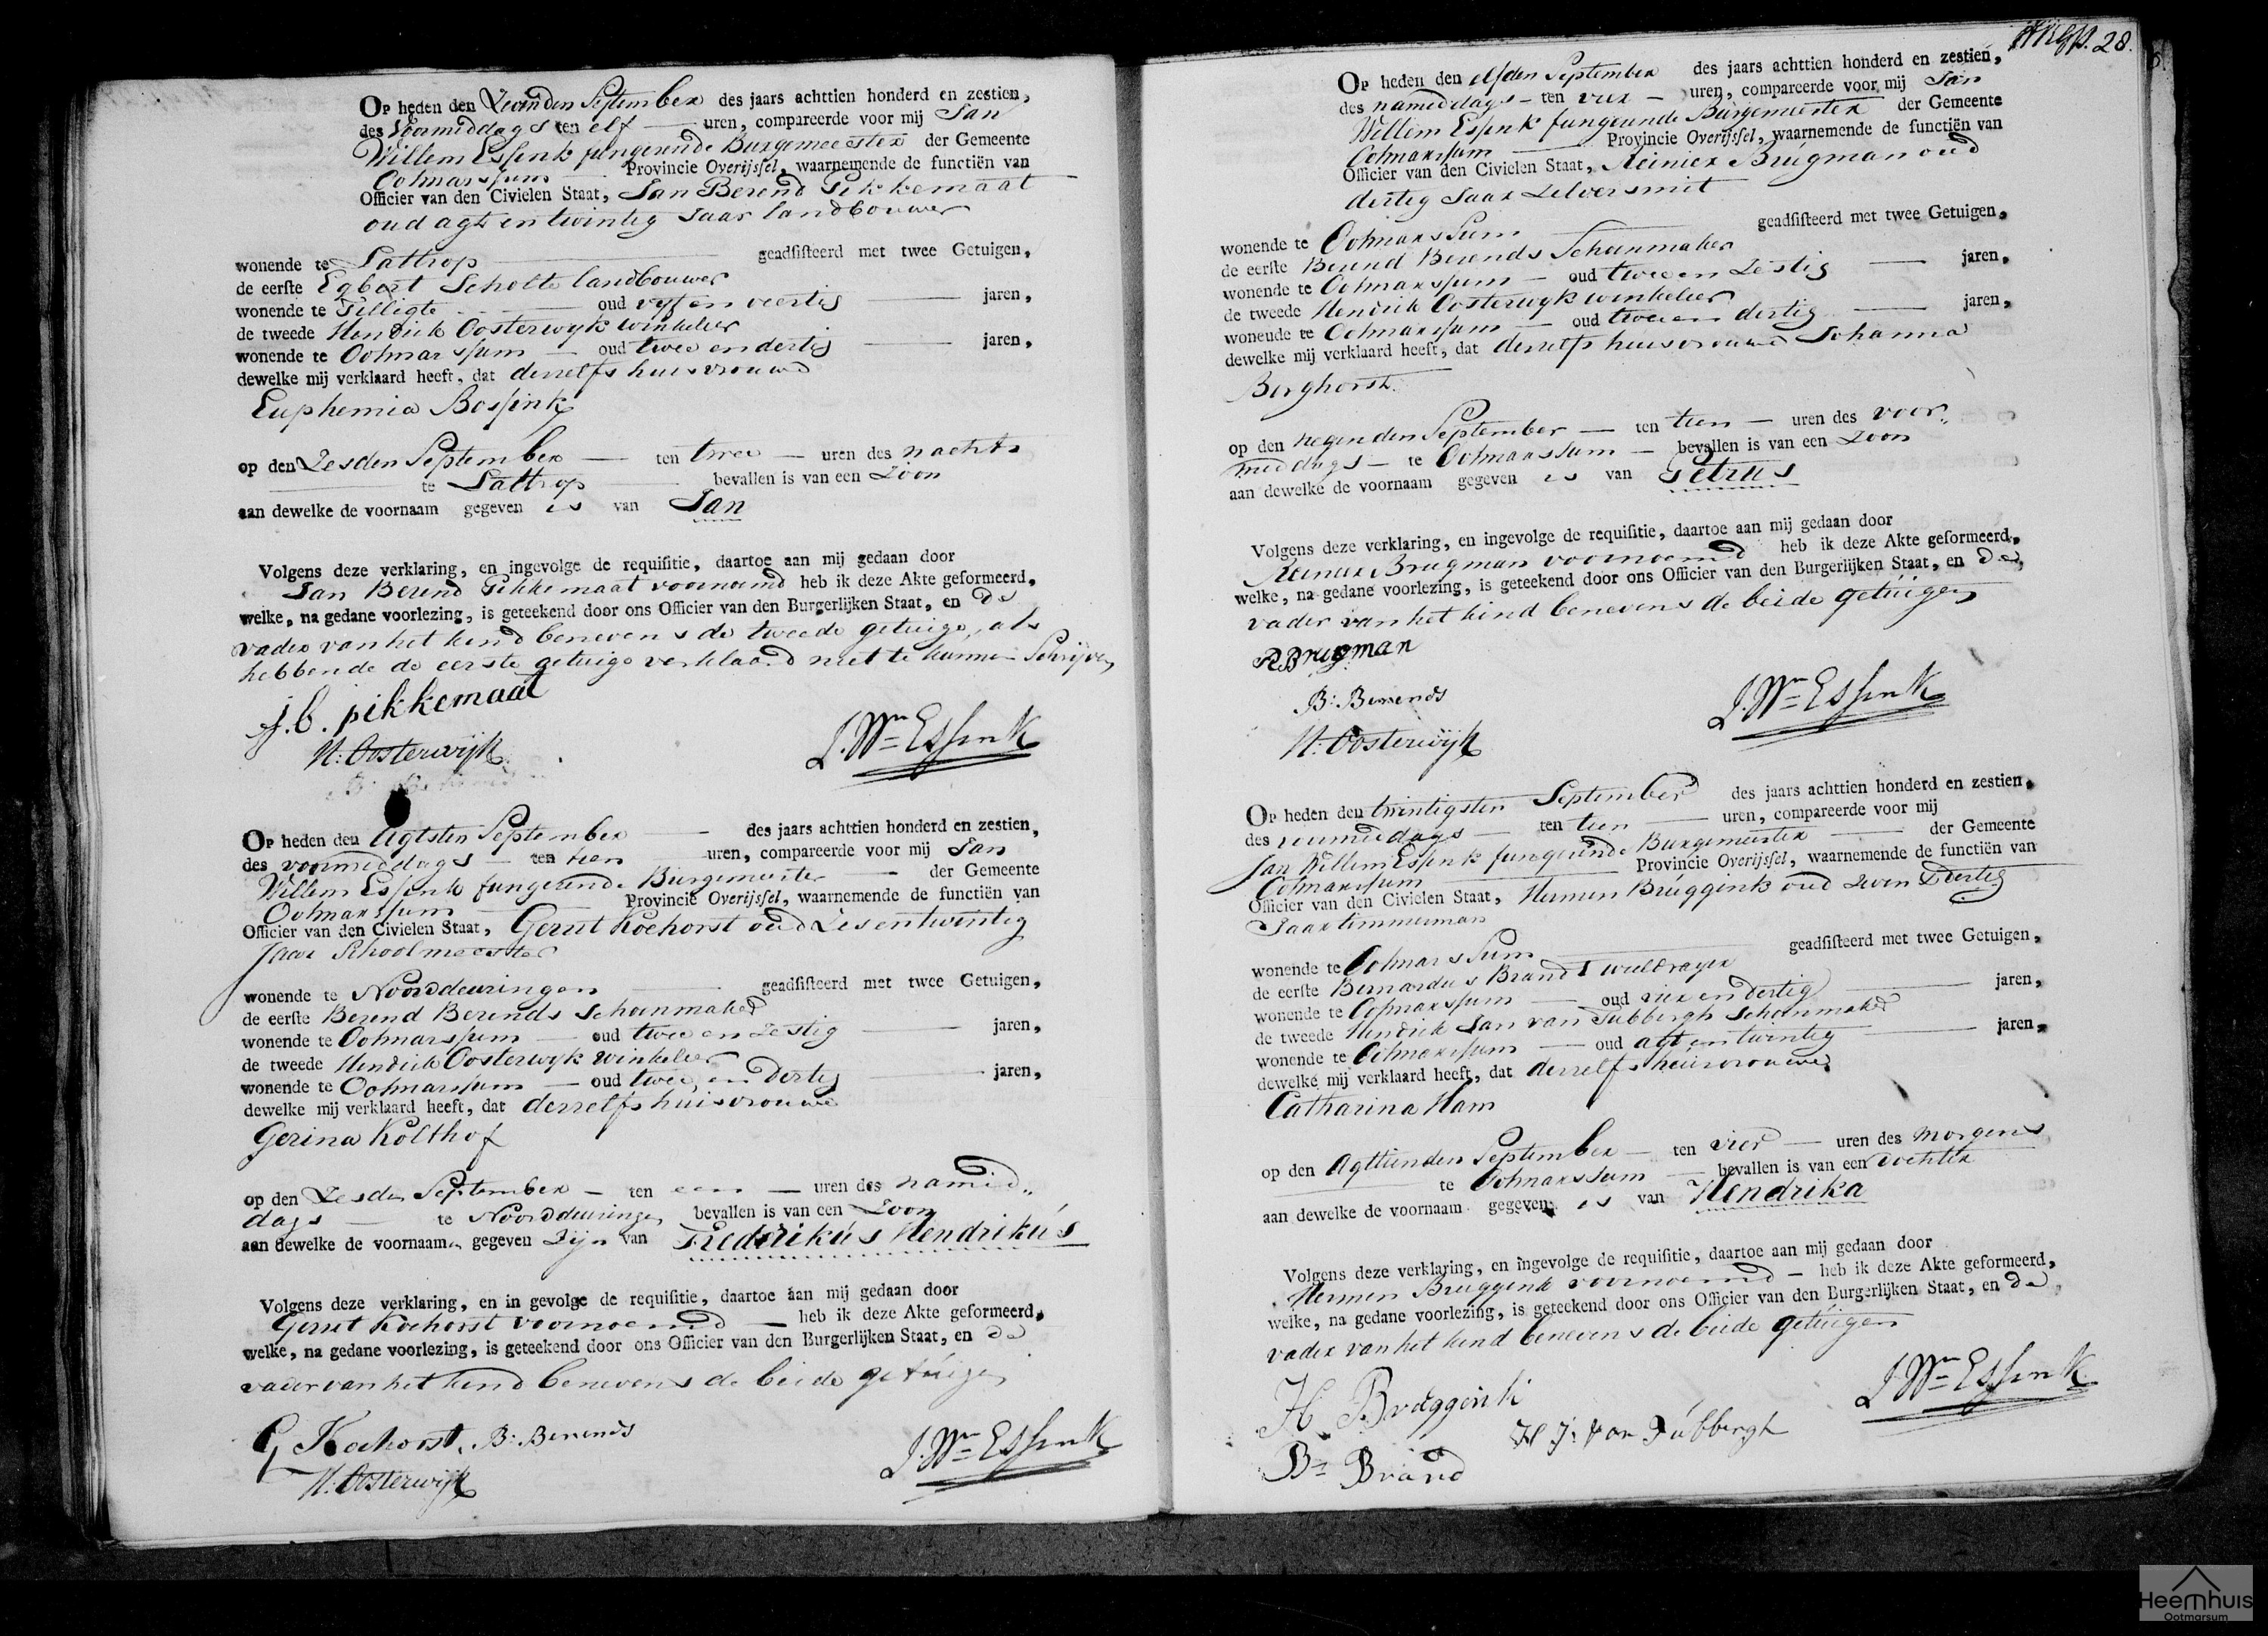 Op heden den Zevenden September des jaars achttien honderd en zestien,
des Voormiddags ten elf uren, compareerde voor mij Jan
Willem Essink fungerende Burgemeester der Gemeente
Ootmarssum Provincie Overijssel, waarnemende de functiën van
Officier van den Civielen Staat, Jan Berend Pikkemaat
oud agt en twintig Jaar landbouwer
wonende te Lattrop geadsisteerd met twee Getuigen,
de eerste Egbert Scholte landbouwer
wonende te Tilligte oud vyf en veertig jaren,
de tweede Hendrik Oosterwyk winkelier
wonende te Ootmarssum oud twee en dertig jaren,
dewelke mij verklaard heeft, dat deszelfs huisvrouwe
Euphemia Bossink
op den Zesden September ten twee uren des nachts
te Lattrop bevallen is van een Zoon
aan dewelke de voornaam gegeven is van Jan
Volgens deze verklaring, en ingevolge de requisitie, daartoe aan mij gedaan door
Jan Berend Pikkemaat voornoemd heb ik deze Akte geformeerd,
welke, na gedane voorlezing, is geteekend door ons Officier van den Burgerlijken Staat, en de
vader van het kind benevens de tweede getuige, als
hebbende de eerste getuige verklaard niet te kunnen Schrijven
j. b. pikkemaat
H: Oosterwijk
J. Wm Essink
Op heden den Agtsten September des jaars achttien honderd en zestien,
des voormiddags ten tien uren, compareerde voor mij Jan
Willem Essink fungerende Burgemeester der Gemeente
Ootmarssum Provincie Overijssel, waarnemende de functiën van
Officier van den Civielen Staat, Gerrit Kochorst oud Zes en twintig
Jaar Schoolmeester
wonende te Noorddeuringen geadsisteerd met twee Getuigen,
de eerste Berend Berends Schoenmaker
wonende te Ootmarssum oud twee en Zestig jaren,
de tweede Hendrik Oosterwyk winkelier
wonende te Ootmarssum oud twee en dertig jaren,
dewelke mij verklaard heeft, dat deszelfs huisvrouwe
Gerina Kolthof
op den Zesden September ten een uren des namid„
dags te Noorddeuringen bevallen is van een Zoon
aan dewelke de voornaam„ gegeven Zijn van Fredrikús Hendrikús
Volgens deze verklaring, en in gevolge de requisitie, daartoe aan mij gedaan door
Gerrit Kochorst voornoemd heb ik deze Akte geformeerd,
welke, na gedane voorlezing, is geteekend door ons Officier van den Burgerlijken Staat, en de
vader van het kind benevens de beide getuigen
G Kochorst. B: Berends
H: Oosterwijk
J. Wm Essink
28.
Op heden den elfden September des jaars achttien honderd en zestien,
des namiddags ten vier uren, compareerde voor mij Jan
Willem Essink fungerende Burgemeester der Gemeente
Ootmarssum Provincie Overijssel, waarnemende de functiën van
Officier van den Civielen Staat, Reinier Brugman oud
dertig Jaar Zilversmit
wonende te Ootmarssum geadsisteerd met twee Getuigen,
de eerste Berend Berends Schoenmaker
wonende te Ootmarssum oud twee en Zestig jaren,
de tweede Hendrik Oosterwyk winkelier
wonende te Ootmarssum oud twee en dertig jaren,
dewelke mij verklaard heeft, dat deszelfs huisvrouwe Johanna
Borghorst
op den negenden September ten tien uren des voor„
middags te Ootmarssum bevallen is van een Zoon
aan dewelke de voornaam gegeven is van Petrus
Volgens deze verklaring, en ingevolge de requisitie, daartoe aan mij gedaan door
Reinier Brugman voornoemd heb ik deze Akte geformeerd,
welke, na gedane voorlezing, is geteekend door ons Officier van den Burgerlijken Staat, en de
vader van het kind benevens de beide getuigen
R Brugman
B: Berends
H: Oosterwijk
J. Wm Essink
Op heden den twintigsten September des jaars achttien honderd en zestien,
des voormiddags ten tien uren, compareerde voor mij
Jan Willem Essink fungerende Burgemeester der Gemeente
Ootmarssum Provincie Overijssel, waarnemende de functiën van
Officier van den Civielen Staat, Hermen Brúggink oud Zeven Dertig
Jaar timmerman
wonende te Ootmarssum geadsisteerd met twee Getuigen,
de eerste Bernardus Brand
wonende te Ootmarssum oud vier en dertig jaren,
de tweede Hendrik Jan van Tubbergh Schoenmaker
wonende te Ootmarssum oud agt en twintig jaren,
dewelke mij verklaard heeft, dat deszelfs húisvrouwe
Catharina Ham
op den Agttienden September ten vier uren des morgens
te Ootmarssum bevallen is van een dochter
aan dewelke de voornaam gegeven is van Hendrika
Volgens deze verklaring, en ingevolge de requisitie, daartoe aan mij gedaan door
Hermen Bruggink voornoemd heb ik deze Akte geformeerd,
welke, na gedane voorlezing, is geteekend door ons Officier van den Burgerlijken Staat, en de
vader van het kind benevens de beide getúigen
H Bruggink
H J: van Túbbergh
B= Brand
J. Wm Essink
Heemhuis
Ootmarsum